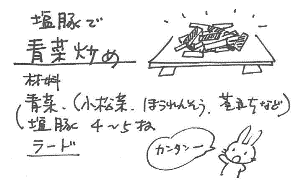 塩豚で
青菜炒め
材料
青菜、(小松菜、ほうれんそう、茎立ちなど)
塩豚 4~5枚
ラード
カンタンー